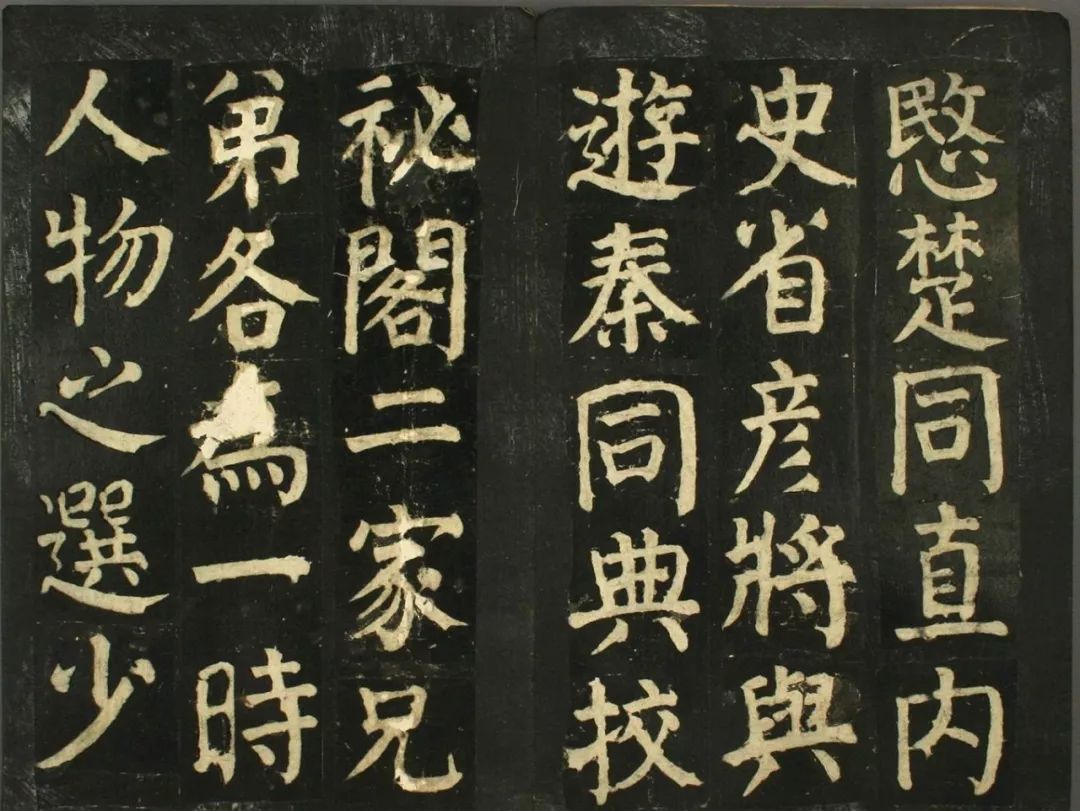 愍楚同直内
史省彦將與
遊秦同典挍
祕閣二家兄
弟各為一時
人物之選少